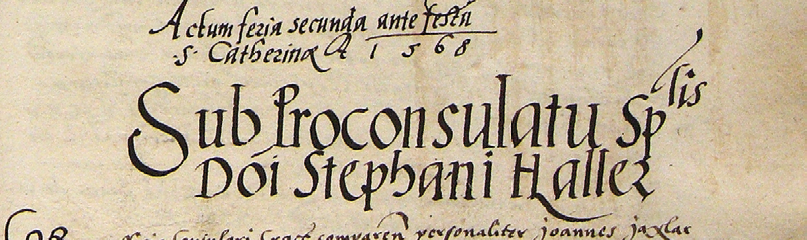 Actum feria secunda ante festū
S. Catherinæ A 1568
Sub Proconsulatu Splis
Dōi Stephani Haller
personaliter Joannes